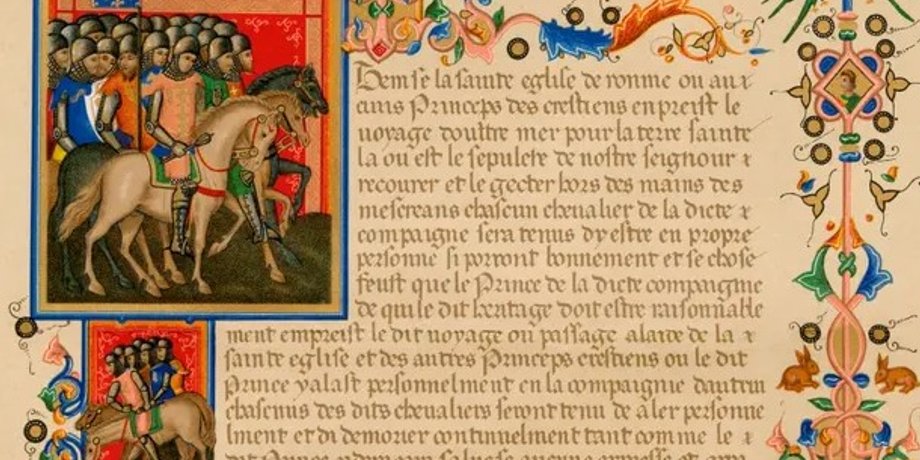 Item se la sainte eglise de romme ou aux
cuns Princeps des crestiens enpreist le
uoyage doultre mer pour la terre sainte
la ou est le sepulcre de nostre seignour ⁊
recourer et le gecter hors des mains des
mescreans chascun cheualier de la dicte ⁊
compaigne sera tenus dy estre en propre
personne si porront bonnement et se chose
feust que le Prince de la dicte compaigme
de qui le dit heritage doit estre raisonnable
ment empreist le dit uoyage ou passage alaide de la ⁊
sainte eglise et des autres Princeps crestiens ou le dit
Prince yalast personnelment en la compaignie dautrui
chascuns des dits cheualiers seront tenu de aler personne
lment et di demorer continuelment tant comme le ⁊
dit Prince